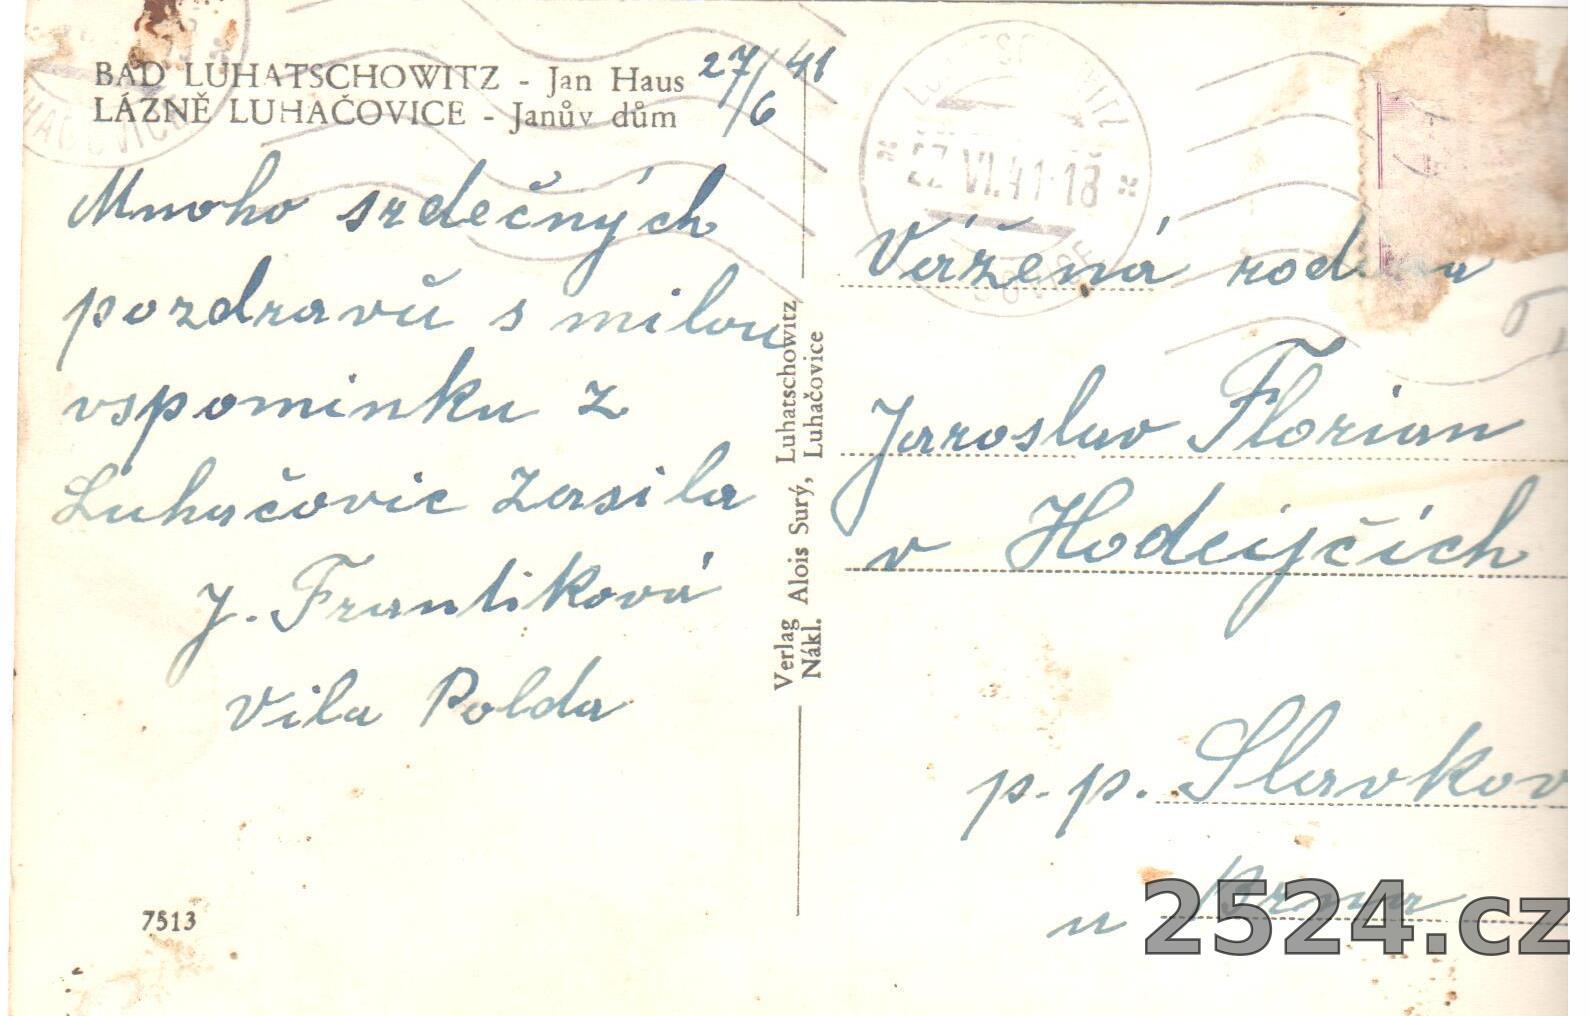 BAD LUHATSCHOWITZ - Jan Haus
LÁZNĚ LUHAČOVICE - Janův dům
27/6 41
Mnoho srdečných
pozdravů s milou
vspominku z
Luhačovic zasila
J. Frantiková
Vila Polda
7513
Verlag Alois Surý, Luhatschowitz
Nákl. Luhačovice
22 VI. 41-18
Vážená rodina
Jaroslav Florian
v Hodějčích
p. p. Slavkov
u Brna
2524.cz